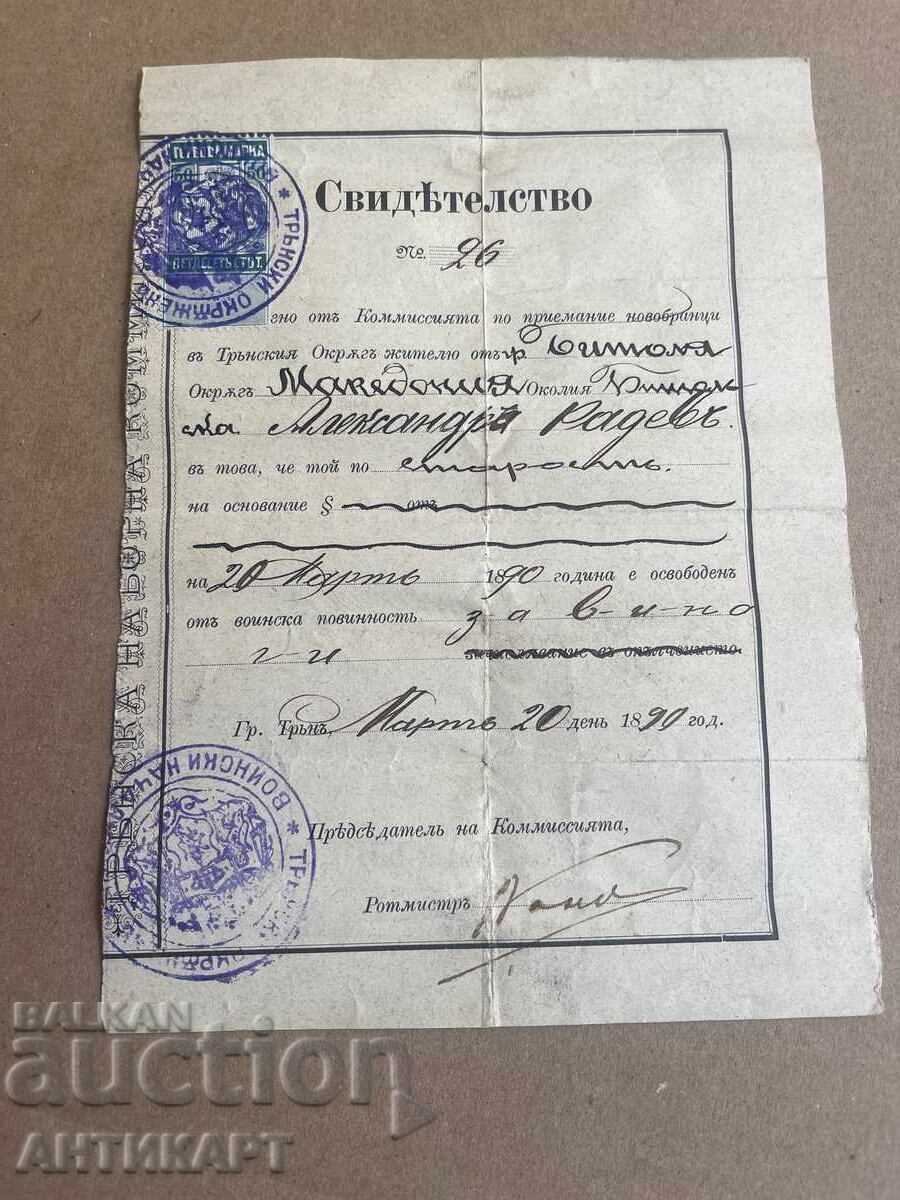 ГЕРБОВА МАРКА
50 50
ПЕТДЕСЕТЬ СТОТ.
* ТРЪНСКИ ОКРѪЖЕНЪ
Свидѣтелство
№ 26
ено отъ Коммиссията по приемание новобранци
въ Трънския Окрѫгъ жителю отъ гр Битоля
Окрѫгъ Македония Околия Битол-
ска Александръ Радевъ.
въ това, че той по старость.
на основание § отъ
на 20 Мартъ 1890 година е освободенъ
отъ воинска повинность за в-и-но
г-и зачисляване въ опълчението
Гр. Трънъ, Мартъ 20 день 1890 год.
Прѣдсѣдатель на Коммиссията,
Ротмистръ
ТРЪНСКА НАБОРНА КОММИ
* ВОИНСКИ НАЧ
* ТРЪНСК. ОКРѪЖЕН
BALKAN
auction
АНТИКАРТ